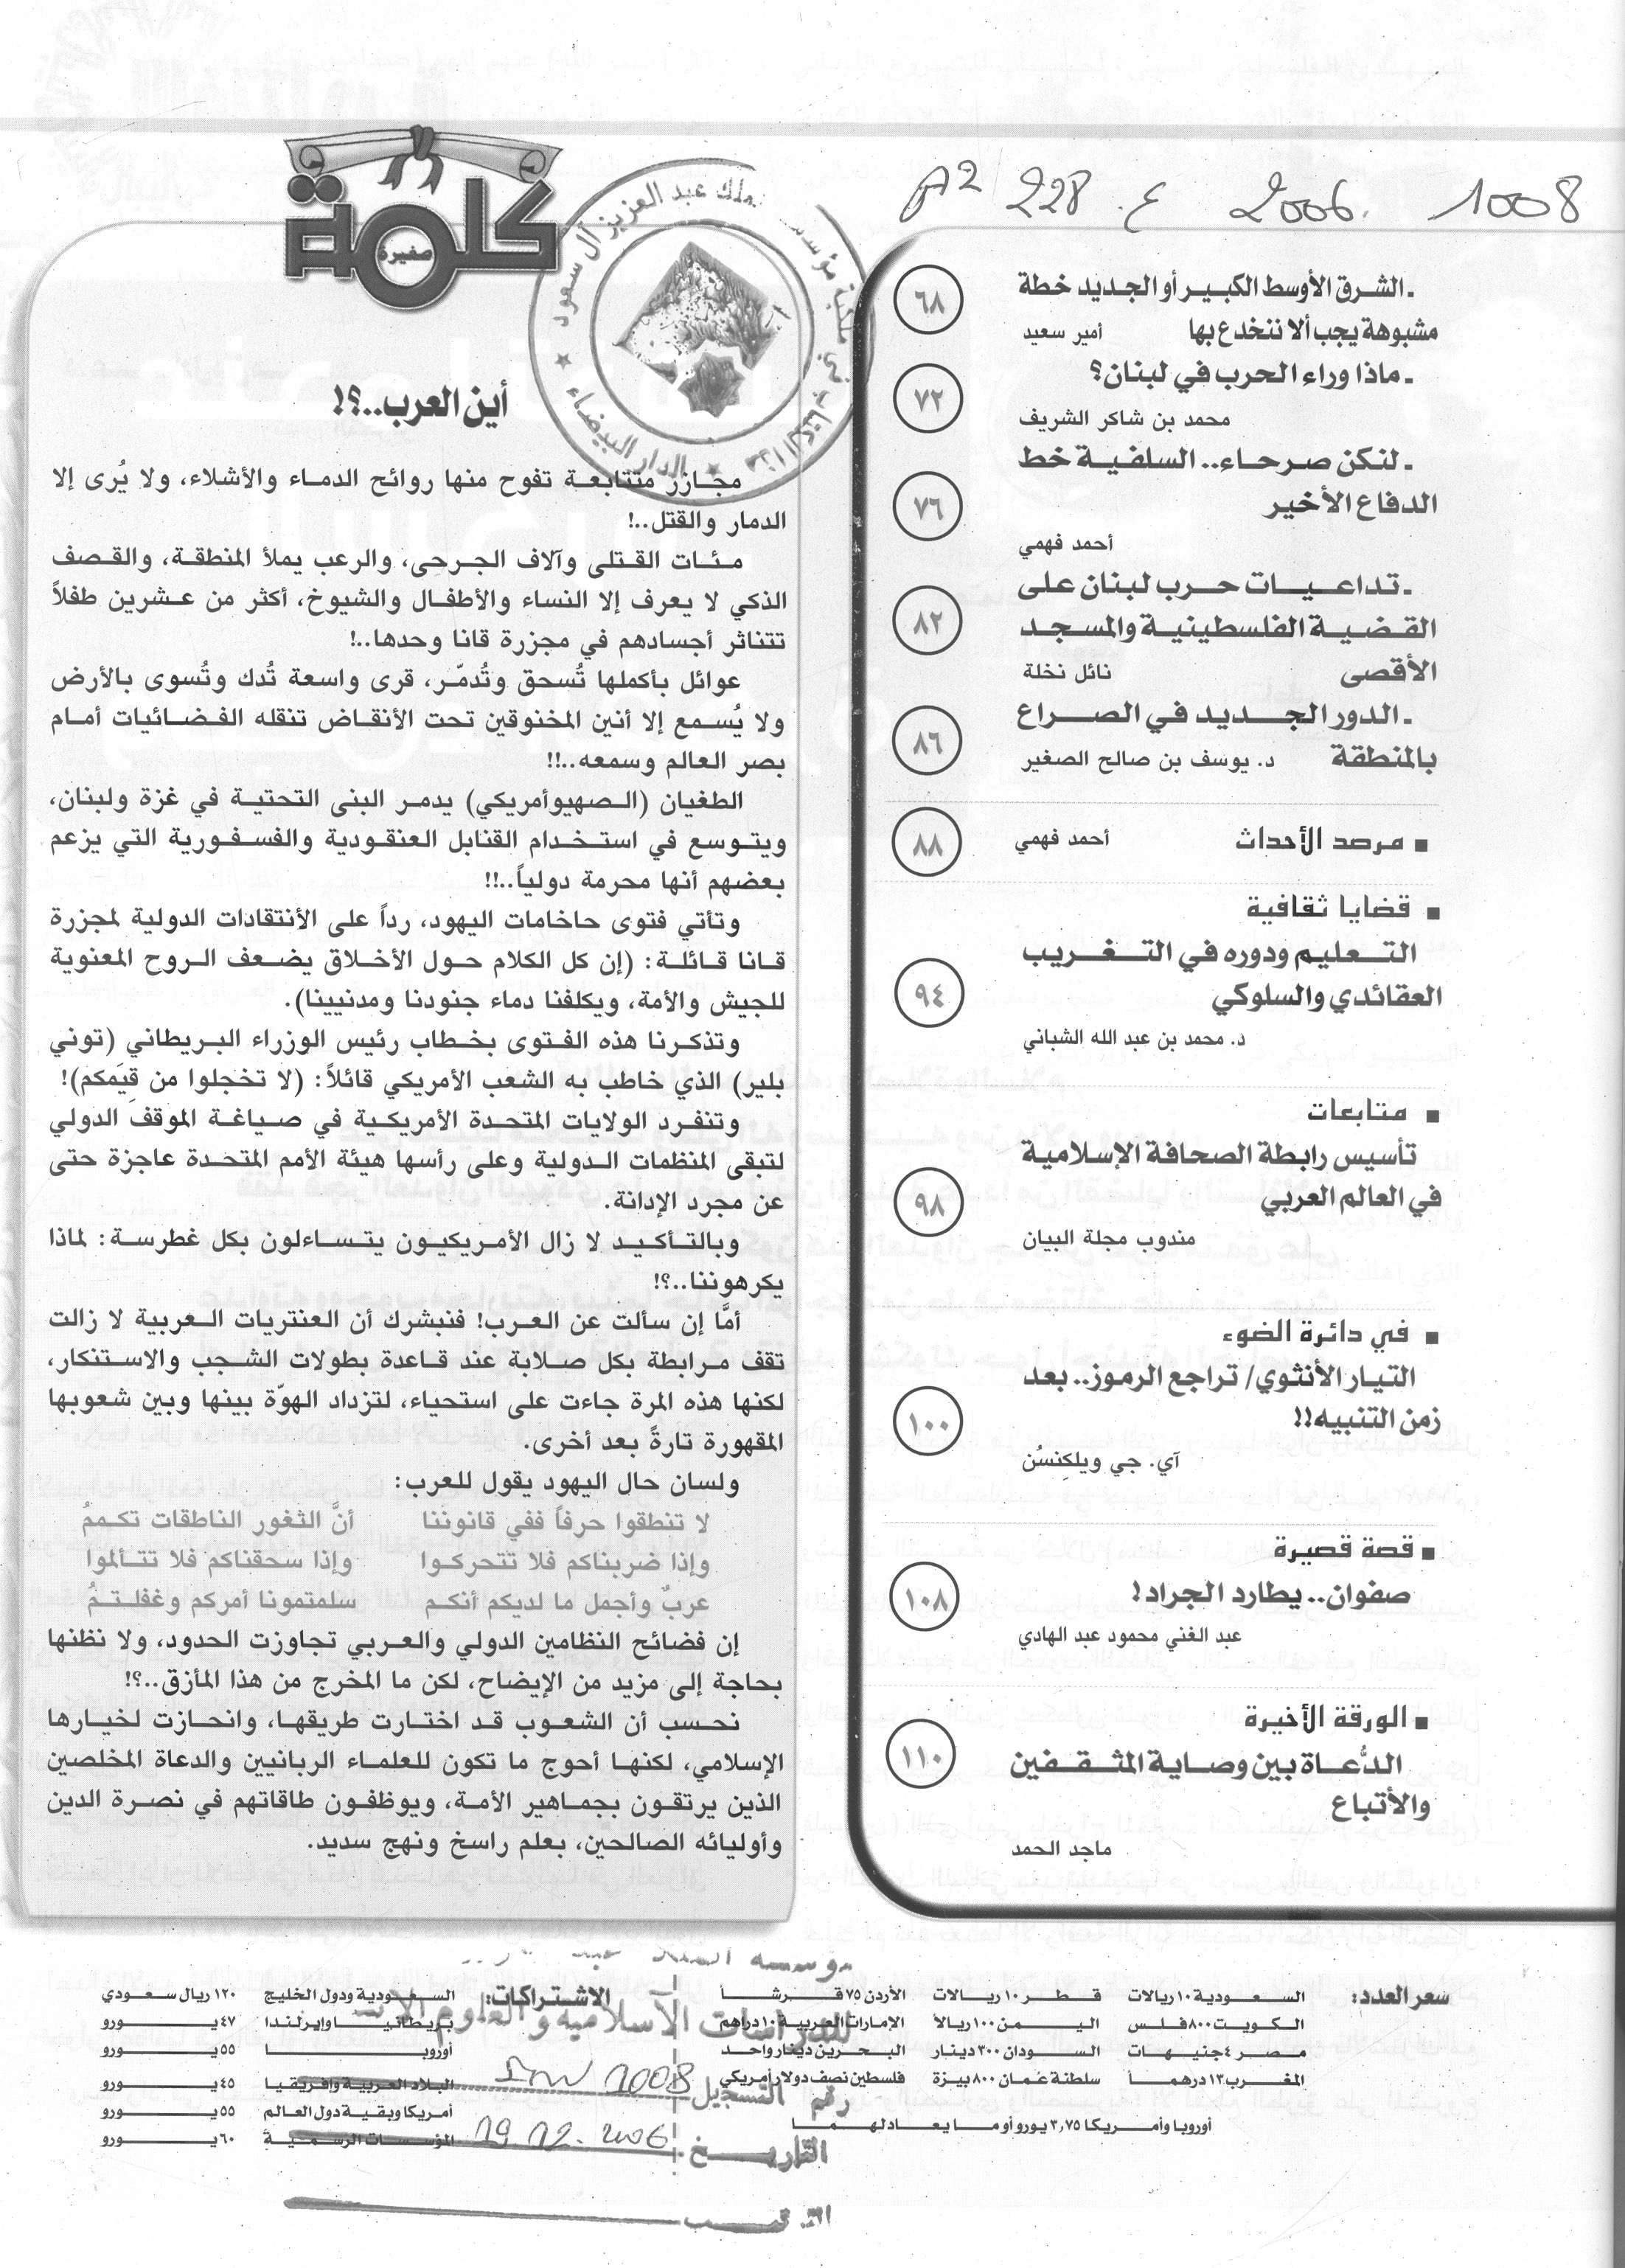 A2 228 .ع 2006. 1008
ـ الشرق الأوسط الكبير أو الجديد خطة
مشبوهة يجب ألا ننخدع بها أمير سعيد
٦٨
ـ ماذا وراء الحرب في لبنان؟
محمد بن شاكر الشريف
٧٢
ـ لنكن صرحاء.. السلفية خط
الدفاع الأخير
أحمد فهمي
٧٦
ـ تداعيات حرب لبنان على
القضية الفلسطينية والمسجد
الأقصى نائل نخلة
٨٢
ـ الدور الجديد في الصراع
بالمنطقة د. يوسف بن صالح الصغير
٨٦
■ مرصد الأحداث أحمد فهمي
٨٨
■ قضايا ثقافية
التعليم ودوره في التغريب
العقائدي والسلوكي
د. محمد بن عبد الله الشباني
٩٤
■ متابعات
تأسيس رابطة الصحافة الإسلامية
في العالم العربي
مندوب مجلة البيان
٩٨
■ في دائرة الضوء
التيار الأنثوي/ تراجع الرموز.. بعد
زمن التنبيه!!
آي. جي ويلكنسُن
١٠٠
■ قصة قصيرة
صفوان.. يطارد الجراد!
عبد الغني محمود عبد الهادي
١٠٨
■ الورقة الأخيرة
الدُّعاة بين وصاية المثقفين
والأتباع
ماجد الحمد
١١٠
كلمة
صغيرة
الملك عبد العزيز آل سعود
الدار البيضاء
أين العرب..؟!
مجازر متتابعة تفوح منها روائح الدماء والأشلاء، ولا يُرى إلا
الدمار والقتل..!
مئات القتلى وآلاف الجرحى، والرعب يملأ المنطقة، والقصف
الذكي لا يعرف إلا النساء والأطفال والشيوخ، أكثر من عشرين طفلاً
تتناثر أجسادهم في مجزرة قانا وحدها..!
عوائل بأكملها تُسحق وتُدمّر، قرى واسعة تُدك وتُسوى بالأرض
ولا يُسمع إلا أنين المخنوقين تحت الأنقاض تنقله الفضائيات أمام
بصر العالم وسمعه..!!
الطغيان (الصهيوأمريكي) يدمر البنى التحتية في غزة ولبنان،
ويتوسع في استخدام القنابل العنقودية والفسفورية التي يزعم
بعضهم أنها محرمة دولياً..!!
وتأتي فتوى حاخامات اليهود، رداً على الأنتقادات الدولية لمجزرة
قانا قائلة: (إن كل الكلام حول الأخلاق يضعف الروح المعنوية
للجيش والأمة، ويكلفنا دماء جنودنا ومدنيينا).
وتذكرنا هذه الفتوى بخطاب رئيس الوزراء البريطاني (توني
بلير) الذي خاطب به الشعب الأمريكي قائلاً: (لا تخجلوا من قِيَمكم)!
وتنفرد الولايات المتحدة الأمريكية في صياغة الموقف الدولي
لتبقى المنظمات الدولية وعلى رأسها هيئة الأمم المتحدة عاجزة حتى
عن مجرد الإدانة.
وبالتأكيد لا زال الأمريكيون يتساءلون بكل غطرسة: لماذا
يكرهوننا..؟!
أمَّا إن سألت عن العرب! فنبشرك أن العنتريات العربية لا زالت
تقف مرابطة بكل صلابة عند قاعدة بطولات الشجب والاستنكار،
لكنها هذه المرة جاءت على استحياء، لتزداد الهوّة بينها وبين شعوبها
المقهورة تارةً بعد أخرى.
ولسان حال اليهود يقول للعرب:
لا تنطقوا حرفاً ففي قانوننا أنَّ الثغور الناطقات تكممُ
وإذا ضربناكم فلا تتحركوا وإذا سحقناكم فلا تتألموا
عربٌ وأجمل ما لديكم أنكم سلمتمونا أمركم وغفلتمُ
إن فضائح النظامين الدولي والعربي تجاوزت الحدود، ولا نظنها
بحاجة إلى مزيد من الإيضاح، لكن ما المخرج من هذا المأزق..؟!
نحسب أن الشعوب قد اختارت طريقها، وانحازت لخيارها
الإسلامي، لكنها أحوج ما تكون للعلماء الربانيين والدعاة المخلصين
الذين يرتقون بجماهير الأمة، ويوظفون طاقاتهم في نصرة الدين
وأوليائه الصالحين، بعلم راسخ ونهج سديد.
سعر العدد: السعودية ١٠ ريالات قطر ١٠ ريالات الأردن ٧٥ قرشاً
الكويت ٨٠٠ فلس اليمن ١٠٠ ريالاً الإمارات العربية ١٠ دراهم
مصر ٤ جنيهات السودان ٣٠٠ دينار البحرين دينار واحد
المغرب ١٣ درهماً سلطنة عمان ٨٠٠ بيزة فلسطين نصف دولار أمريكي
أوروبا وأمريكا ٣,٧٥ يورو أو ما يعادلهما
الاشتراكات: السعودية ودول الخليج ١٢٠ ريال سعودي
بريطانيا وإيرلندا ٤٧ يورو
أوروبا ٥٥ يورو
البلاد العربية وإفريقيا ٤٥ يورو
أمريكا وبقية دول العالم ٥٥ يورو
المؤسسات الرسمية ٦٠ يورو
مؤسسة الملك عبد
للدراسات الاسلامية والعلوم
رقم التسجيل 1008
التاريخ 19.12.2006